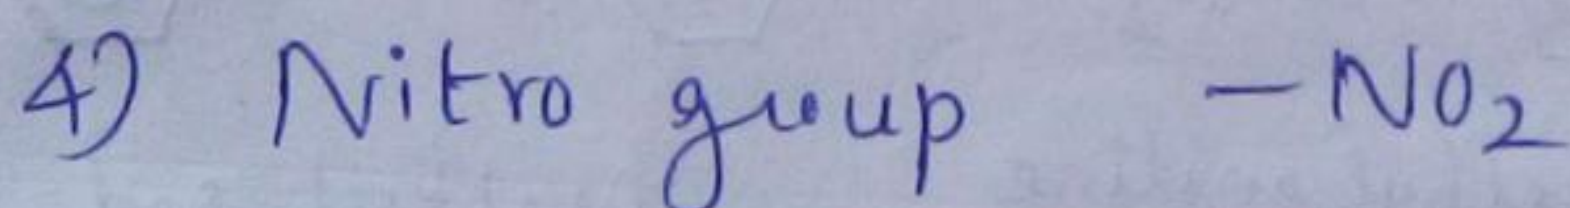 4) Nitro group -NO₂